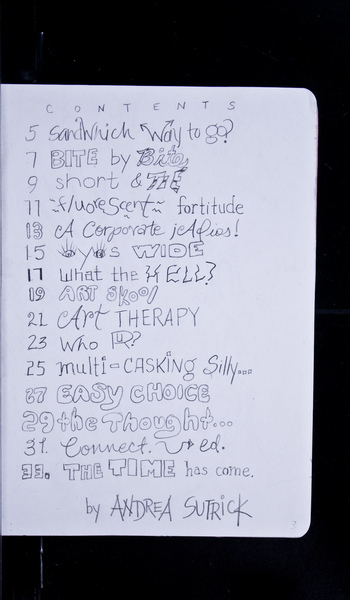 CONTENTS
5 Sandwhich Way to go?
7 BITE by Bite
9 short &
11 ~fluoreScent~ fortitude
13 A Corporate jcAdios!
15 eyes WIDE
17 What the HELL?
19 ART Skool
21 Art THERAPY
23 Who R?
25 multi-CASKING Silly...
27 EASY CHOICE
29 the Thought...
31. Connect. ed.
33. THE TIME has come.
by ANDREA SUTRICK